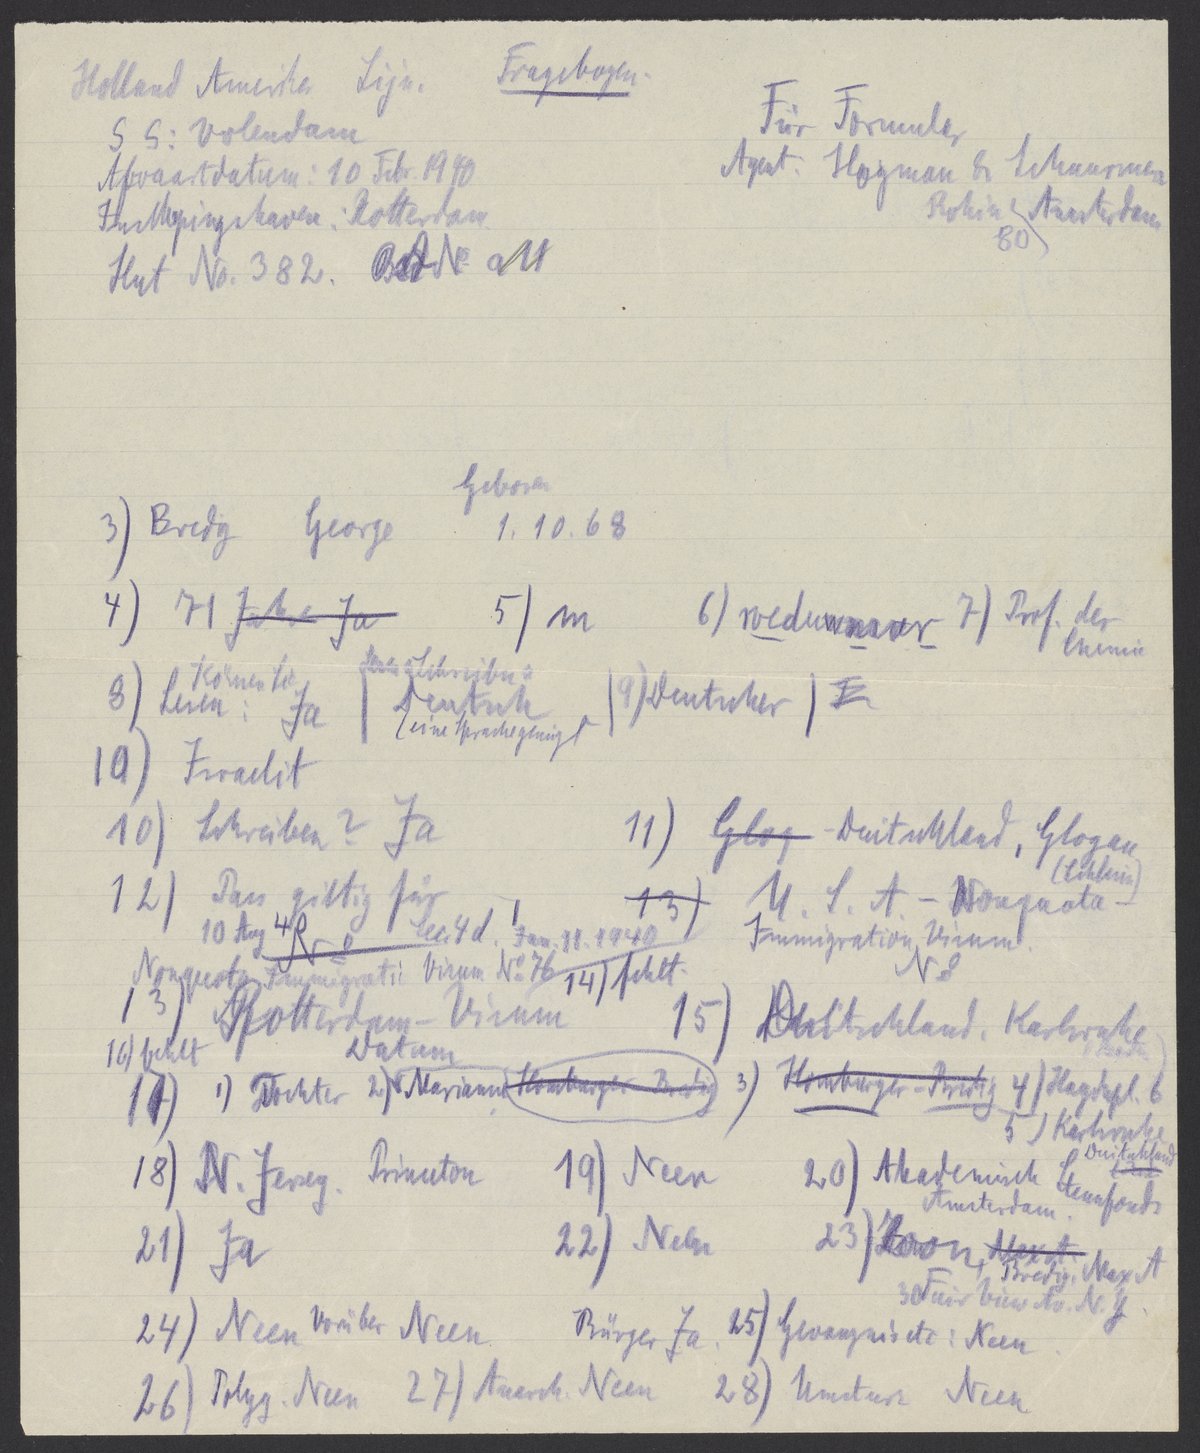 Holland Amerika Lijn. Fragebogen.
Für Formular
S S: Volendam
Agent: Hoyman & Schuurman
Afvaartdatum: 10 Febr. 1940
Rokin Amsterdam
80
Inschepingshaven: Rotterdam
Hut No. 382. Bed No
Geboren
3) Bredig George 1. 10. 68
4) 71 Jahre Ja 5) m 6) weduwnaar 7) Prof. der
Chemie
8) Können Sie
Lesen: Ja Schreiben:
Deutsch
(eine Sprache genügt 9) Deutscher
10) Israelit
10) Schreiben? Ja 11) Glog - Deutschland, Glogau
(Schlesien)
12) Pass giltig für 13) U. S. A. - Nonquota -
10 Aug Jan. 11. 1940 Immigration Visum.
Nonquota Immigratie Visum No 76 14) fehlt. No
13) Rotterdam - Visum 15) Deutschland. Karlsruhe
(Baden)
16) fehlt Datum
17) 1) Tochter 2) Marianne Homburger Bredig 3) Homburger-Bredig 4) Haydnpl. 6
5) Karlsruhe
Deutschland
18) N. Jersey. Princeton 19) Neen 20) Akademisch Steunfonds
Amsterdam.
21) Ja 22) Neen 23) Zoon, Max A.
Bredig, Max A
30 Fair View Av. N. J.
24) Neen Vorüber Neen Bürger Ja. 25) Gevangnis etc: Neen.
26) Polyg. Neen 27) Anarch. Neen 28) Umsturz Neen